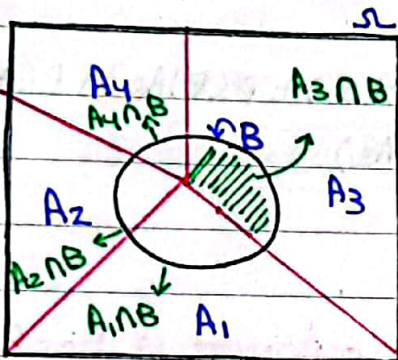 Ω
A4
A4∩B
B
A3∩B
A2
A3
A2∩B
A1∩B
A1